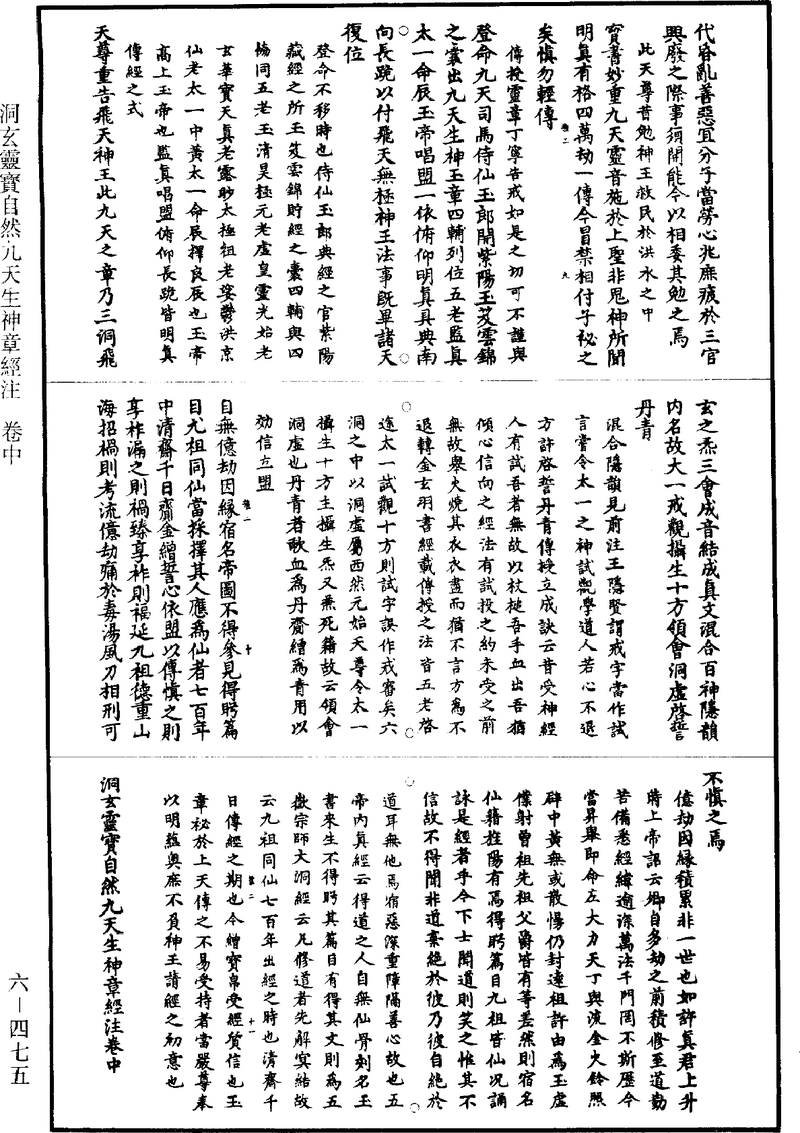 代昏亂善惡宜分子當勞心兆庶疲於三官
興廢之際事須開能今以相委其勉之焉
此天尊昔勉神王救民於洪水之中
寶書妙重九天靈音施於上聖非鬼神所聞
明真有格四萬劫一傳今冒禁相付子祕之
矣慎勿輕傳
傳授靈章丁寧告戒如是之切可不謹與
登命九天司馬侍仙玉郎開紫陽玉笈雲錦
之囊出九天生神玉章四輔列位五老監真
太一命辰玉帝唱盟一依俯仰明真具典南
向長跪以付飛天無極神王法事既畢諸天
復位
登命不移時也侍仙玉郎典經之官紫陽
藏經之所玉笈雲錦貯經之囊四輔與四
協同五老玉清昊極元老虛皇靈光始老
玄華寶天真老靈眇太極祖老婆鬱洪京
仙老太一中黃太一命辰擇良辰也玉帝
高上玉帝也監真唱盟俯仰長跪皆明真
傳經之式
天尊重告飛天神王此九天之章乃三洞飛
玄之炁三會成音結成真文混合百神隱韻
內名故大一戒觀攝生十方領會洞虛啓誓
丹青
混合隱韻見前注王隱賢謂戒字當作試
言嘗令太一之神試觀學道人若心不退
方許啓誓丹青傳授立成訣云昔受神經
人有試吾者無故以杖槌吾手血出吾猶
傾心信向之經法有試投之約未受之前
無故舉火燒其衣衣盡而猶不言方為不
退轉金玄羽書經載傳授之法皆五老啓
途太一試觀十方則試字誤作戒審矣六
洞之中以洞虛屬西然元始天尊令太一
攝生十方主攝生炁又兼死籍故云領會
洞虛也丹青者歃血為丹齎繒為青用以
効信立盟
自無億劫因緣宿名帝圖不得參見得眄篇
目九祖同仙當採擇其人應為仙者七百年
中清齋千日齎金繒誓心依盟以傳慎之則
享祚漏之則禍臻享祚則福延九祖德重山
海招禍則考流億劫痛於毒湯風刀相刑可
不慎之焉
億劫因緣積累非一世也如許真君上升
時上帝詔云卿自多劫之前積修至道勤
苦備悉經緯逾深萬法千門罔不斯歷今
當昇舉即命左大力天丁與流金火鈴照
辟中黃無或散慢仍封遠祖許由為玉虛
僕射曾祖先祖父爵皆有等差然則宿名
仙籍旌陽有焉得眄篇目九祖皆仙況誦
詠是經者乎今下士聞道則笑之惟其不
信故不得聞非道棄絶於彼乃彼自絶於
道耳無他焉宿惡深重障隔善心故也五
帝內真經云得道之人自無仙骨刻名玉
書來生不得眄其篇目有得其文則為五
嶽宗師大洞經云凡修道者先解㝠結故
云九祖同仙七百年出經之時也清齋千
日傳經之期也今繒寶帛受經質信也玉
章祕於上天傳之不易受持者當嚴尊奉
以明蘊奧庶不負神王請經之初意也
洞玄靈寶自然九天生神章經注卷中
洞玄靈寶自然九天生神章經注 卷中
六—四七五